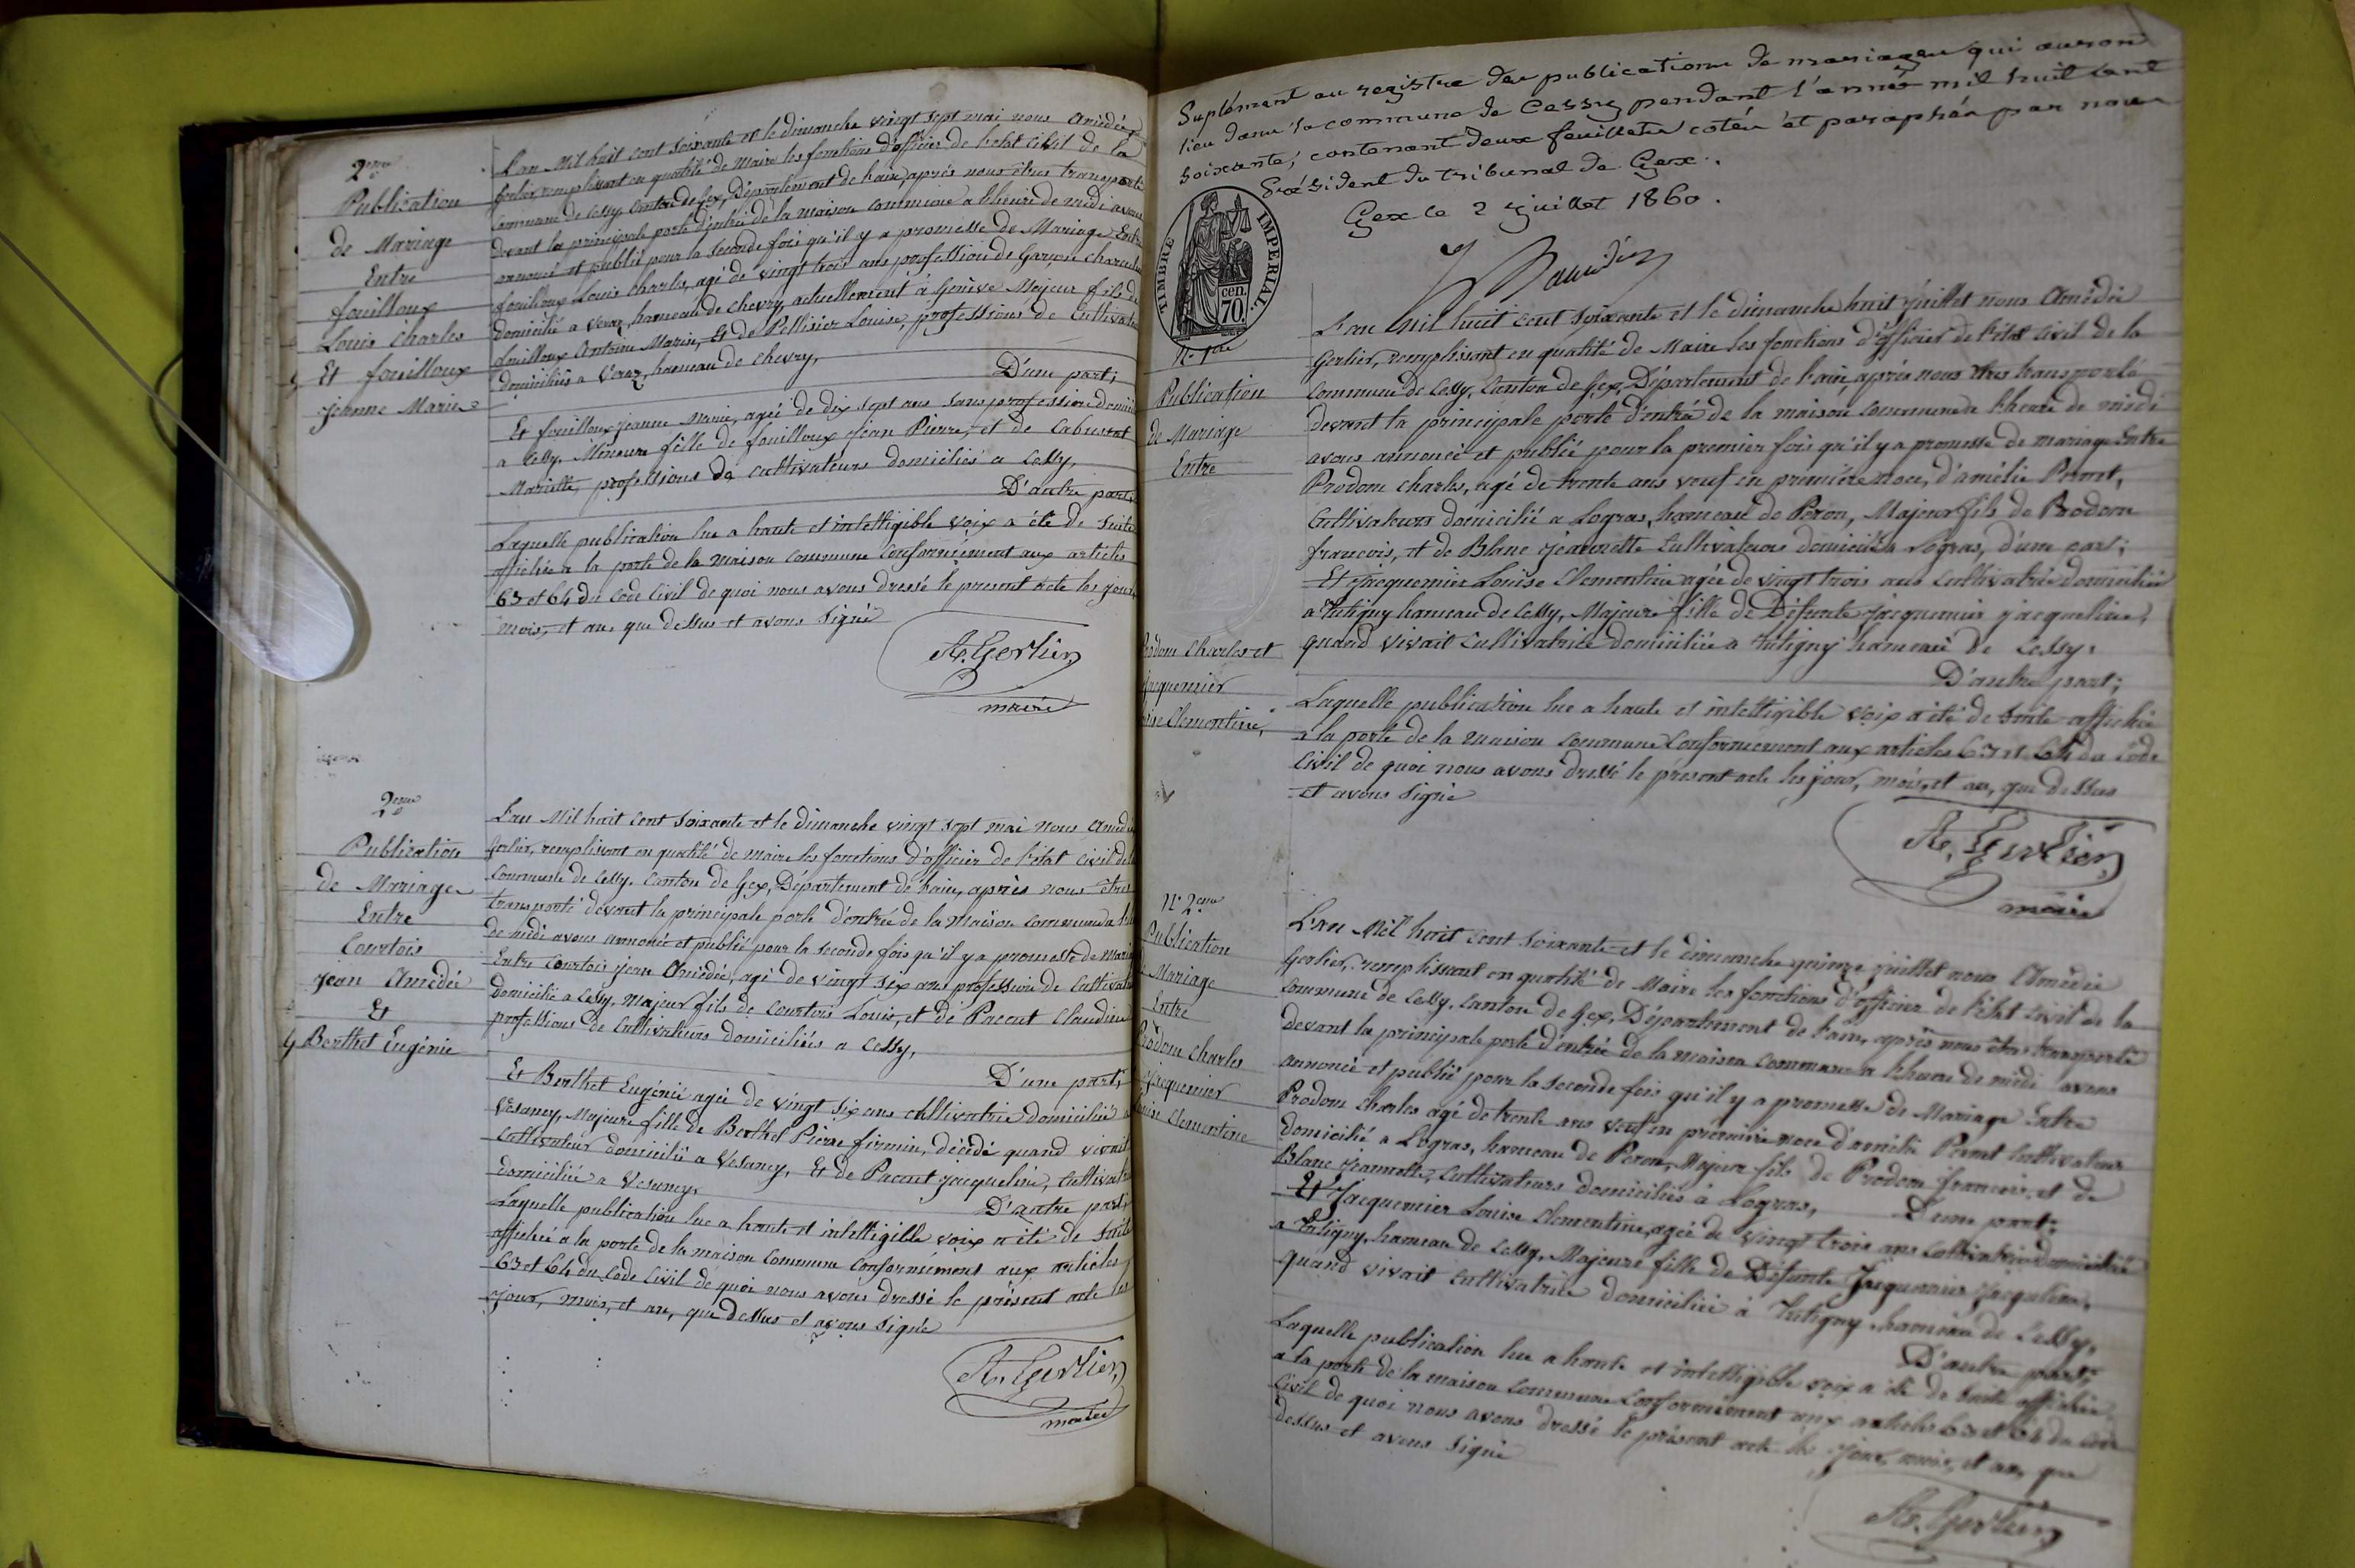 2eme
Publication
de Mariage
Entre
fouilloux
Louis Charles
Et fouilloux
jeanne Marie
L'an Mil huit cent soixante et le dimanche vingt sept mai nous Amédée
Gerlier, remplissant en qualité de Maire les fonctions d'officier de l'état civil de la
Commune de Cessy Canton de Gex, Département de l'ain, après nous êtres transporté
devant la principale porte d'entrée de la maison commune a l'heure de midi avons
annoncé et publié pour la seconde fois qu'il y a promesse de Mariage Entre
fouilloux Louis Charles, agé de vingt trois ans profession de Garçon
domicilié a Veraz, hameau de Chevry, actuellement à Genève Majeur fils de
fouilloux Antoine Marin, Et de Pellisier Louise, professions de Cultivat
domiciliés a Veraz, hameau de Chevry,
D'une part;
Et fouilloux jeanne Marie, agée de dix sept ans sans profession domici
a Cessy. Mineure fille de fouilloux jean Pierre, et de Cabustat
Mariette, professions de cultivateurs domiciliés a Cessy,
D'autre part;
Laquelle publication lue a haute et intelligible voix a été de suite
affichée a la porte de la maison commune Conformément aux articles
63 et 64 du Code Civil de quoi nous avons dressé le present acte les jour,
mois, et an, que dessus et avons signé
A. Gerlier,
maire
2eme
Publication
de Mariage
Entre
Courtois
jean Amédée
Et
Berthet Eugénie
L'an Mil huit cent soixante et le dimanche vingt sept mai nous Amédée
Gerlier, remplissant en qualité de maire les fonctions d'officier de l'état civil de
Commune de Cessy. Canton de Gex, Département de l'ain, après nous êtres
transporté devant la principale porte d'entrée de la Maison commune a
de midi avons annoncé et publié pour la seconde fois qu'il y a promesse de Mari
Entre Courtois jean Amédée, agé de vingt six ans profession de Cultivat
domicilié a Cessy, majeur fils de Courtois Louis, et de Pacout Claudine
professions de Cultivateurs domiciliés a Cessy,
D'une part;
Et Berthet Eugénie agée de vingt six ans cultivatrice domiciliée a
Vesancy, Majeure fille de Berthet Pierre firmin, décédé quand vivait
Cultivateur domicilié a Vesancy, Et de Pacout jacqueline, Cultivat
domiciliée a Vesancy,
D'autre part;
Laquelle publication lue a haute et intelligible voix a été de suite
affichée a la porte de la maison commune conformément aux articles
63 et 64 du Code Civil de quoi nous avons dressé le présent acte les
jour, mois, et an, que dessus et avons signé
A. Gerlier,
maire
Suplément au registre des publications de mariages qui auront
lieu dans la commune de Cessy pendant l'année mil huit cent
soixante, contenant deux feuillets cotés et paraphés par nous
Président du tribunal de Gex.
Gex le 2 juillet 1860.
TIMBRE IMPERIAL.
cen.
70.
N° 1ere
Publication
de Mariage
Entre
Prodom Charles et
Jacquemier
Louise Clementine,
L'an Mil huit cent soixante et le dimanche huit juillet nous Amédée
Gerlier, remplissant en qualité de Maire les fonctions d'officier de l'état civil de la
Commune de Cessy, Canton de Gex, Département de l'ain, après nous êtres transporté
devant la principale porte d'entrée de la maison commune a l'heure de midi
avons annoncé et publié pour la premier fois qu'il y a promesse de mariage Entre
Prodom Charles, agé de trente ans veuf en première noce, d'amélie Pernet,
Cultivateurs domicilié a Logras, hameau de Péron, Majeur fils de Prodom
francois, et de Blanc jeannette Cultivateurs domiciliés a Logras, d'une part;
Et Jacquemier Louise Clementine agée de vingt trois ans cultivatrice domiciliée
a Tutigny hameau de Cessy, Majeure fille de Défunte Jacquemier jacqueline,
quand vivait Cultivatrice domiciliée a Tutigny hameau de Cessy.
D'autre part;
Laquelle publication lue a haute et intelligible voix a été de suite affichée
a la porte de la maison commune Conformément aux articles 63 et 64 du Code
Civil de quoi nous avons dressé le présent acte les jour, mois, et an, que dessus
et avons signé
A. Gerlier,
maire
N° 2eme
Publication
de Mariage
Entre
Prodom Charles
Jacquemier
Louise Clementine
L'an Mil huit cent soixante et le dimanche quinze juillet nous Amédée
Gerlier, remplissant en qualité de Maire les fonctions d'officier de l'état civil de la
Commune de Cessy. Canton de Gex, Département de l'ain, après nous êtres transporté
devant la principale porte d'entrée de la maison commune a l'heure de midi avons
annoncé et publié pour la seconde fois qu'il y a promesse de Mariage Entre
Prodom Charles agé de trente ans veuf en première noce d'amélie Pernet Cultivateur
domicilié a Logras, hameau de Peron, Majeur fils de Prodom francois, et de
Blanc jeannette, Cultivateurs domiciliés à Logras, D'une part;
Et Jacquemier Louise Clementine, agée de vingt trois ans cultivatrice domiciliée
a Tutigny, hameau de Cessy, Majeure fille de Défunte Jacquemier Jacqueline,
quand vivait cultivatrice domiciliée à Tutigny hameau de Cessy,
D'autre part;
Laquelle publication lue a haute et intelligible voix a été de suite affichée
a la porte de la maison commune Conformément aux articles 63 et 64 du Code
Civil de quoi nous avons dressé le présent acte les jour, mois, et an, que
dessus et avons signé
A. Gerlier,